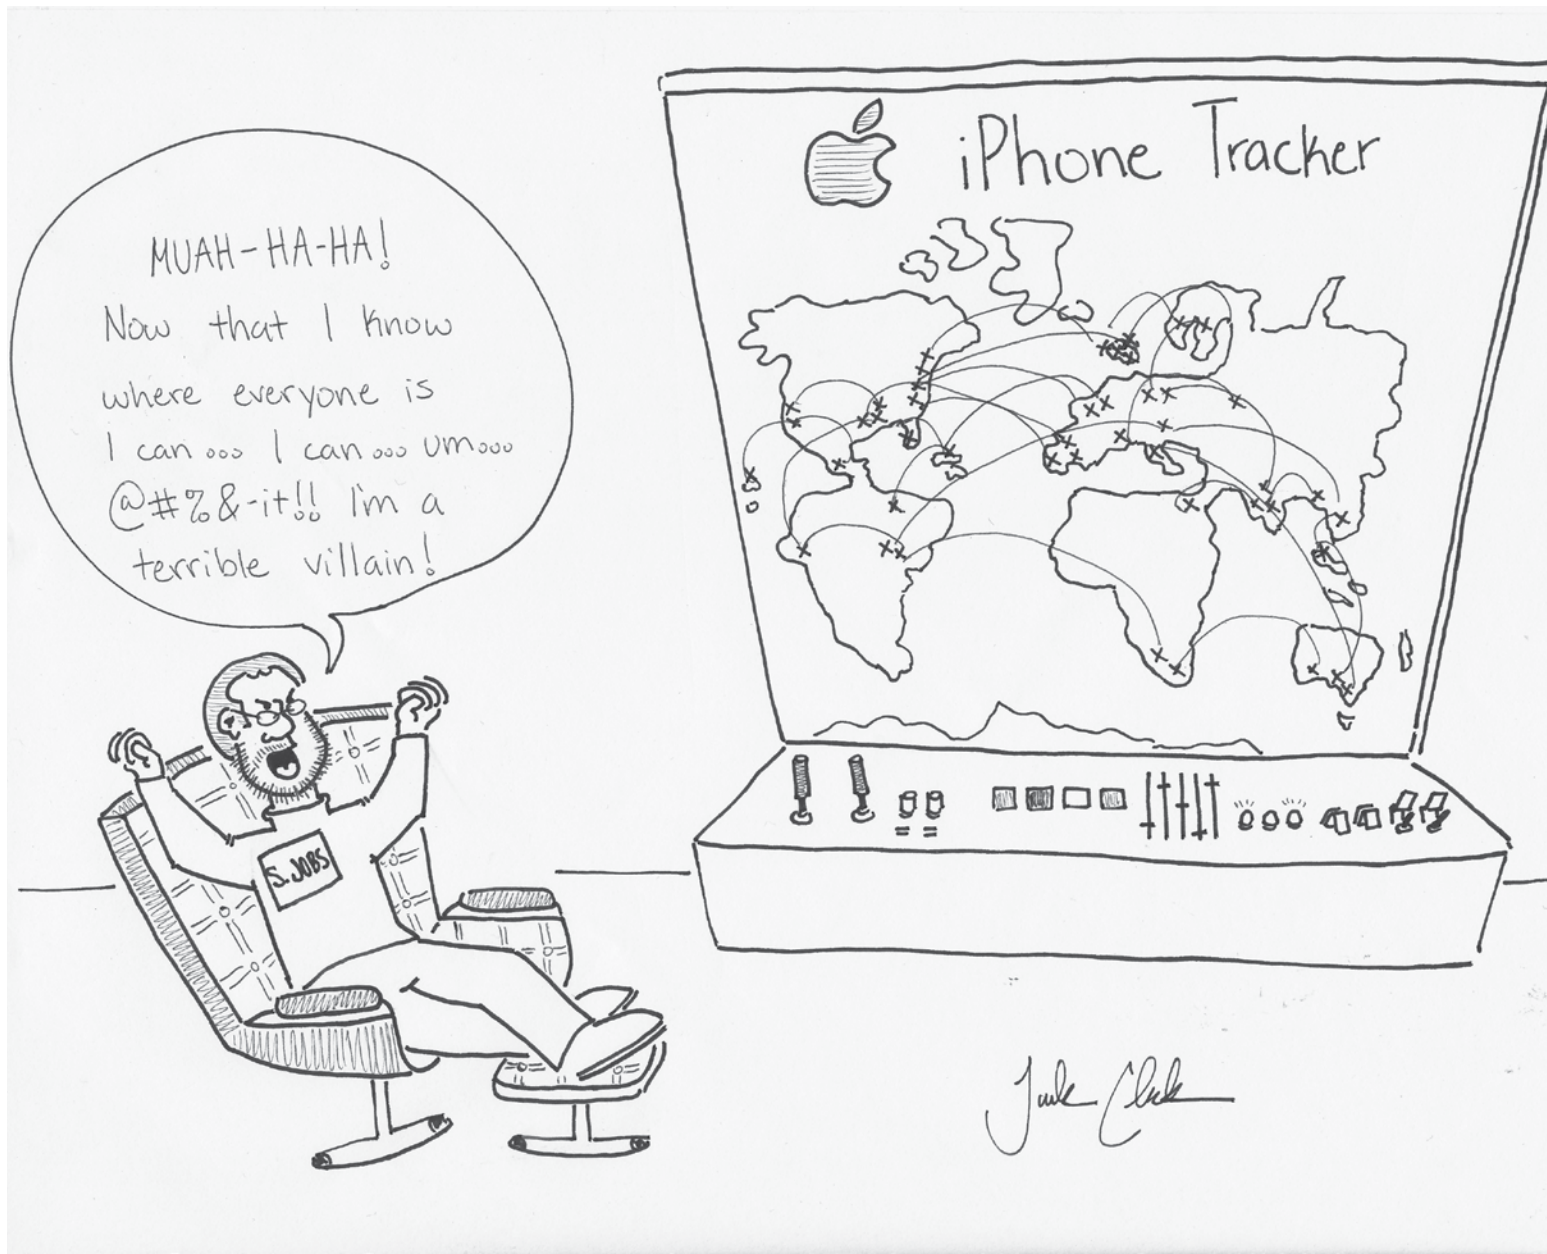 MUAH-HA-HA!
Now that I know
where everyone is
I can... I can... um...
@#%&-it!! I'm a
terrible villain!
iPhone Tracker
S. JOBS